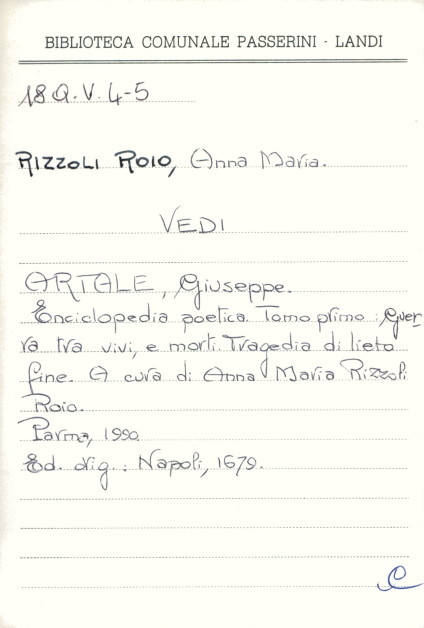 BIBLIOTECA COMUNALE PASSERINI - LANDI
18 Q.V. 4-5
RIZZOLI ROIO, Anna Maria.
VEDI
ARTALE, Giuseppe.
Enciclopedia poetica. Tomo primo: Guer-
ra tra vivi, e morti. Tragedia di lieto
fine. A cura di Anna Maria Rizzoli
Roio.
Parma, 1990.
Ed. orig.: Napoli, 1679.
C